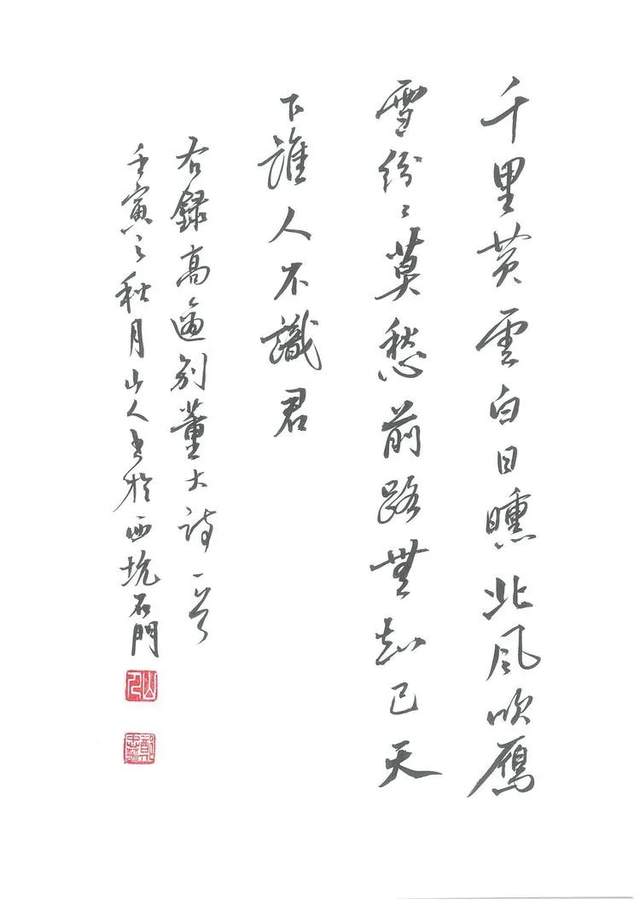 千里黄雲白日曛北風吹鴈
雪紛々莫愁前路無知己天
下誰人不識君
右録高適別董大詩一首
壬寅之秋月山人書於西坑石門
山人